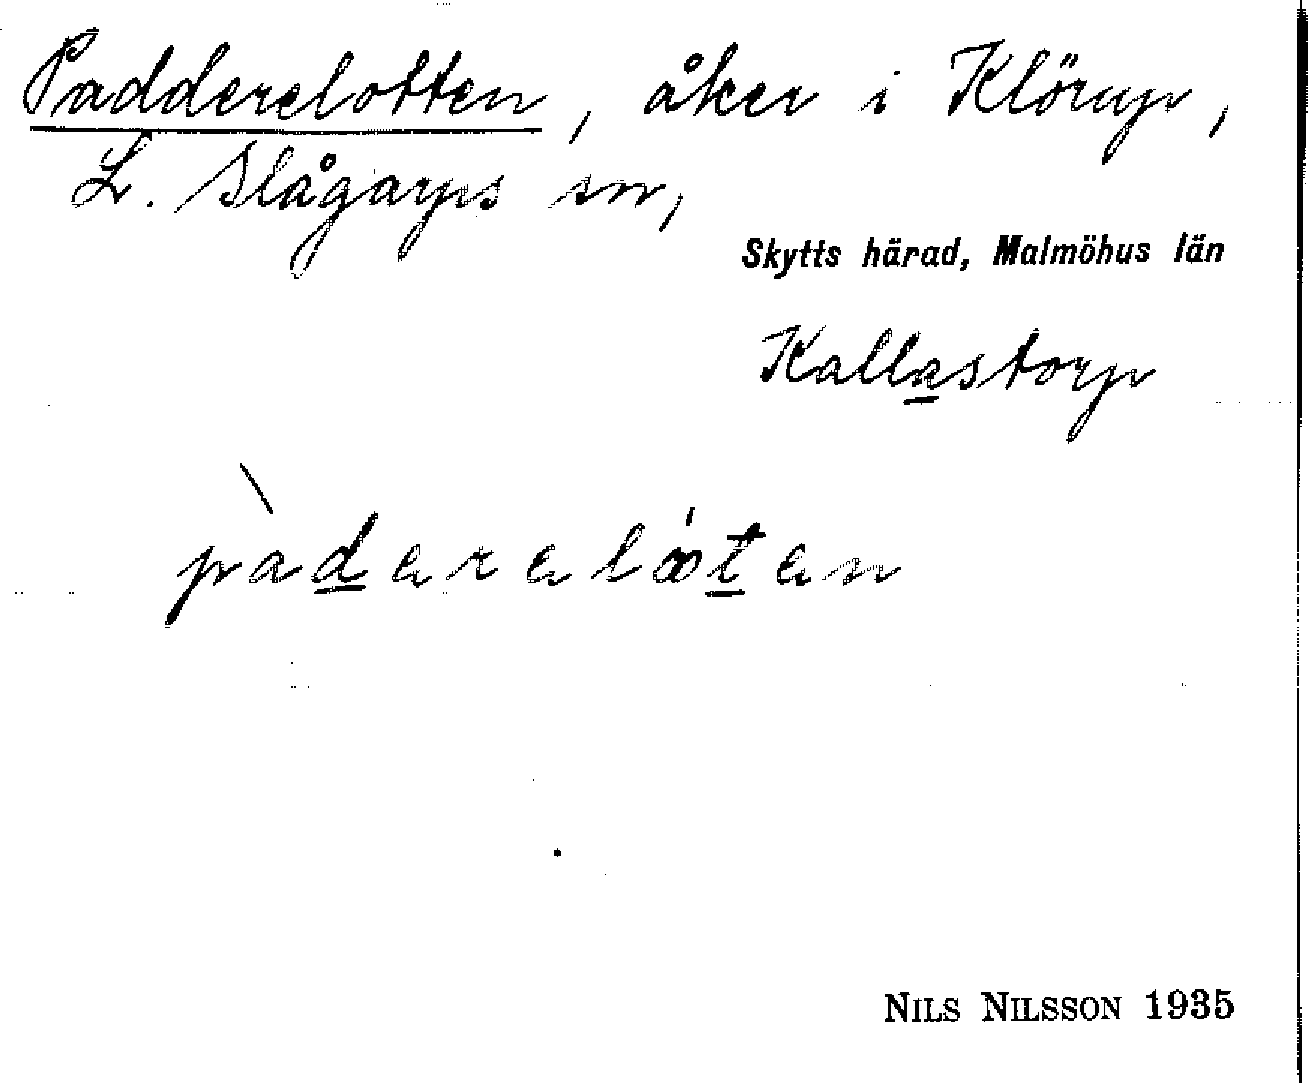 Padderelotten, åker i Klörup,
L. Slågarps sn,
Skytts härad, Malmöhus län
Kallastorp
pàderelóten
NILS NILSSON 1935